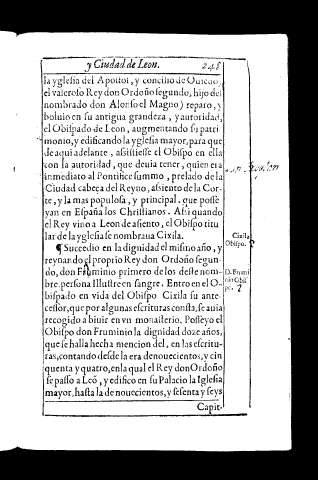 y Ciudad de Leon. 248
la yglesia del Apostol, y concilio de Ouiedo,
el valeroso Rey don Ordoño segundo, hijo del
nombrado don Alonso el Magno) reparo, y
boluio en su antigua grandeza, y autoridad,
el Obispado de Leon, augmentando su patri
monio, y edificando la yglesia mayor, para que
de aqui adelante, assistiesse el Obispo en ella
con la autoridad, que deuia tener, quien era
inmediato al Pontifice summo, prelado de la
Ciudad cabeça del Reyno, assiento de la Cor-
te, y la mas populosa, y principal, que posse
yan en España los Christianos. Assi quando
el Rey vino a Leon de assiento, el Obispo titu
lar de la yglesia se nombraua Cixila.
Cixila
Obispo.
¶ Sucedio en la dignidad el mismo año, y
reynando el proprio Rey don Ordoño segun-
do, don Fruminio primero de los deste nom-
bre, persona Illustre en sangre. Entro en el O-
D. Frumi
nio Obis
po.
bispado en vida del Obispo Cixila su ante-
cessor, que por algunas escrituras consta, se auia
recogido a biuir en vn monasterio. Posseyo el
Obispo don Fruminio la dignidad doze años,
que se halla hecha mencion del, en las escritu-
ras, contando desde la era de nouecientos, y cin
quenta y quatro, en la qual el Rey don Ordoño
se passo a Leõ, y edifico su Palacio la Iglesia
mayor, hasta la de nouecientos, y sesenta y seys
Capit-